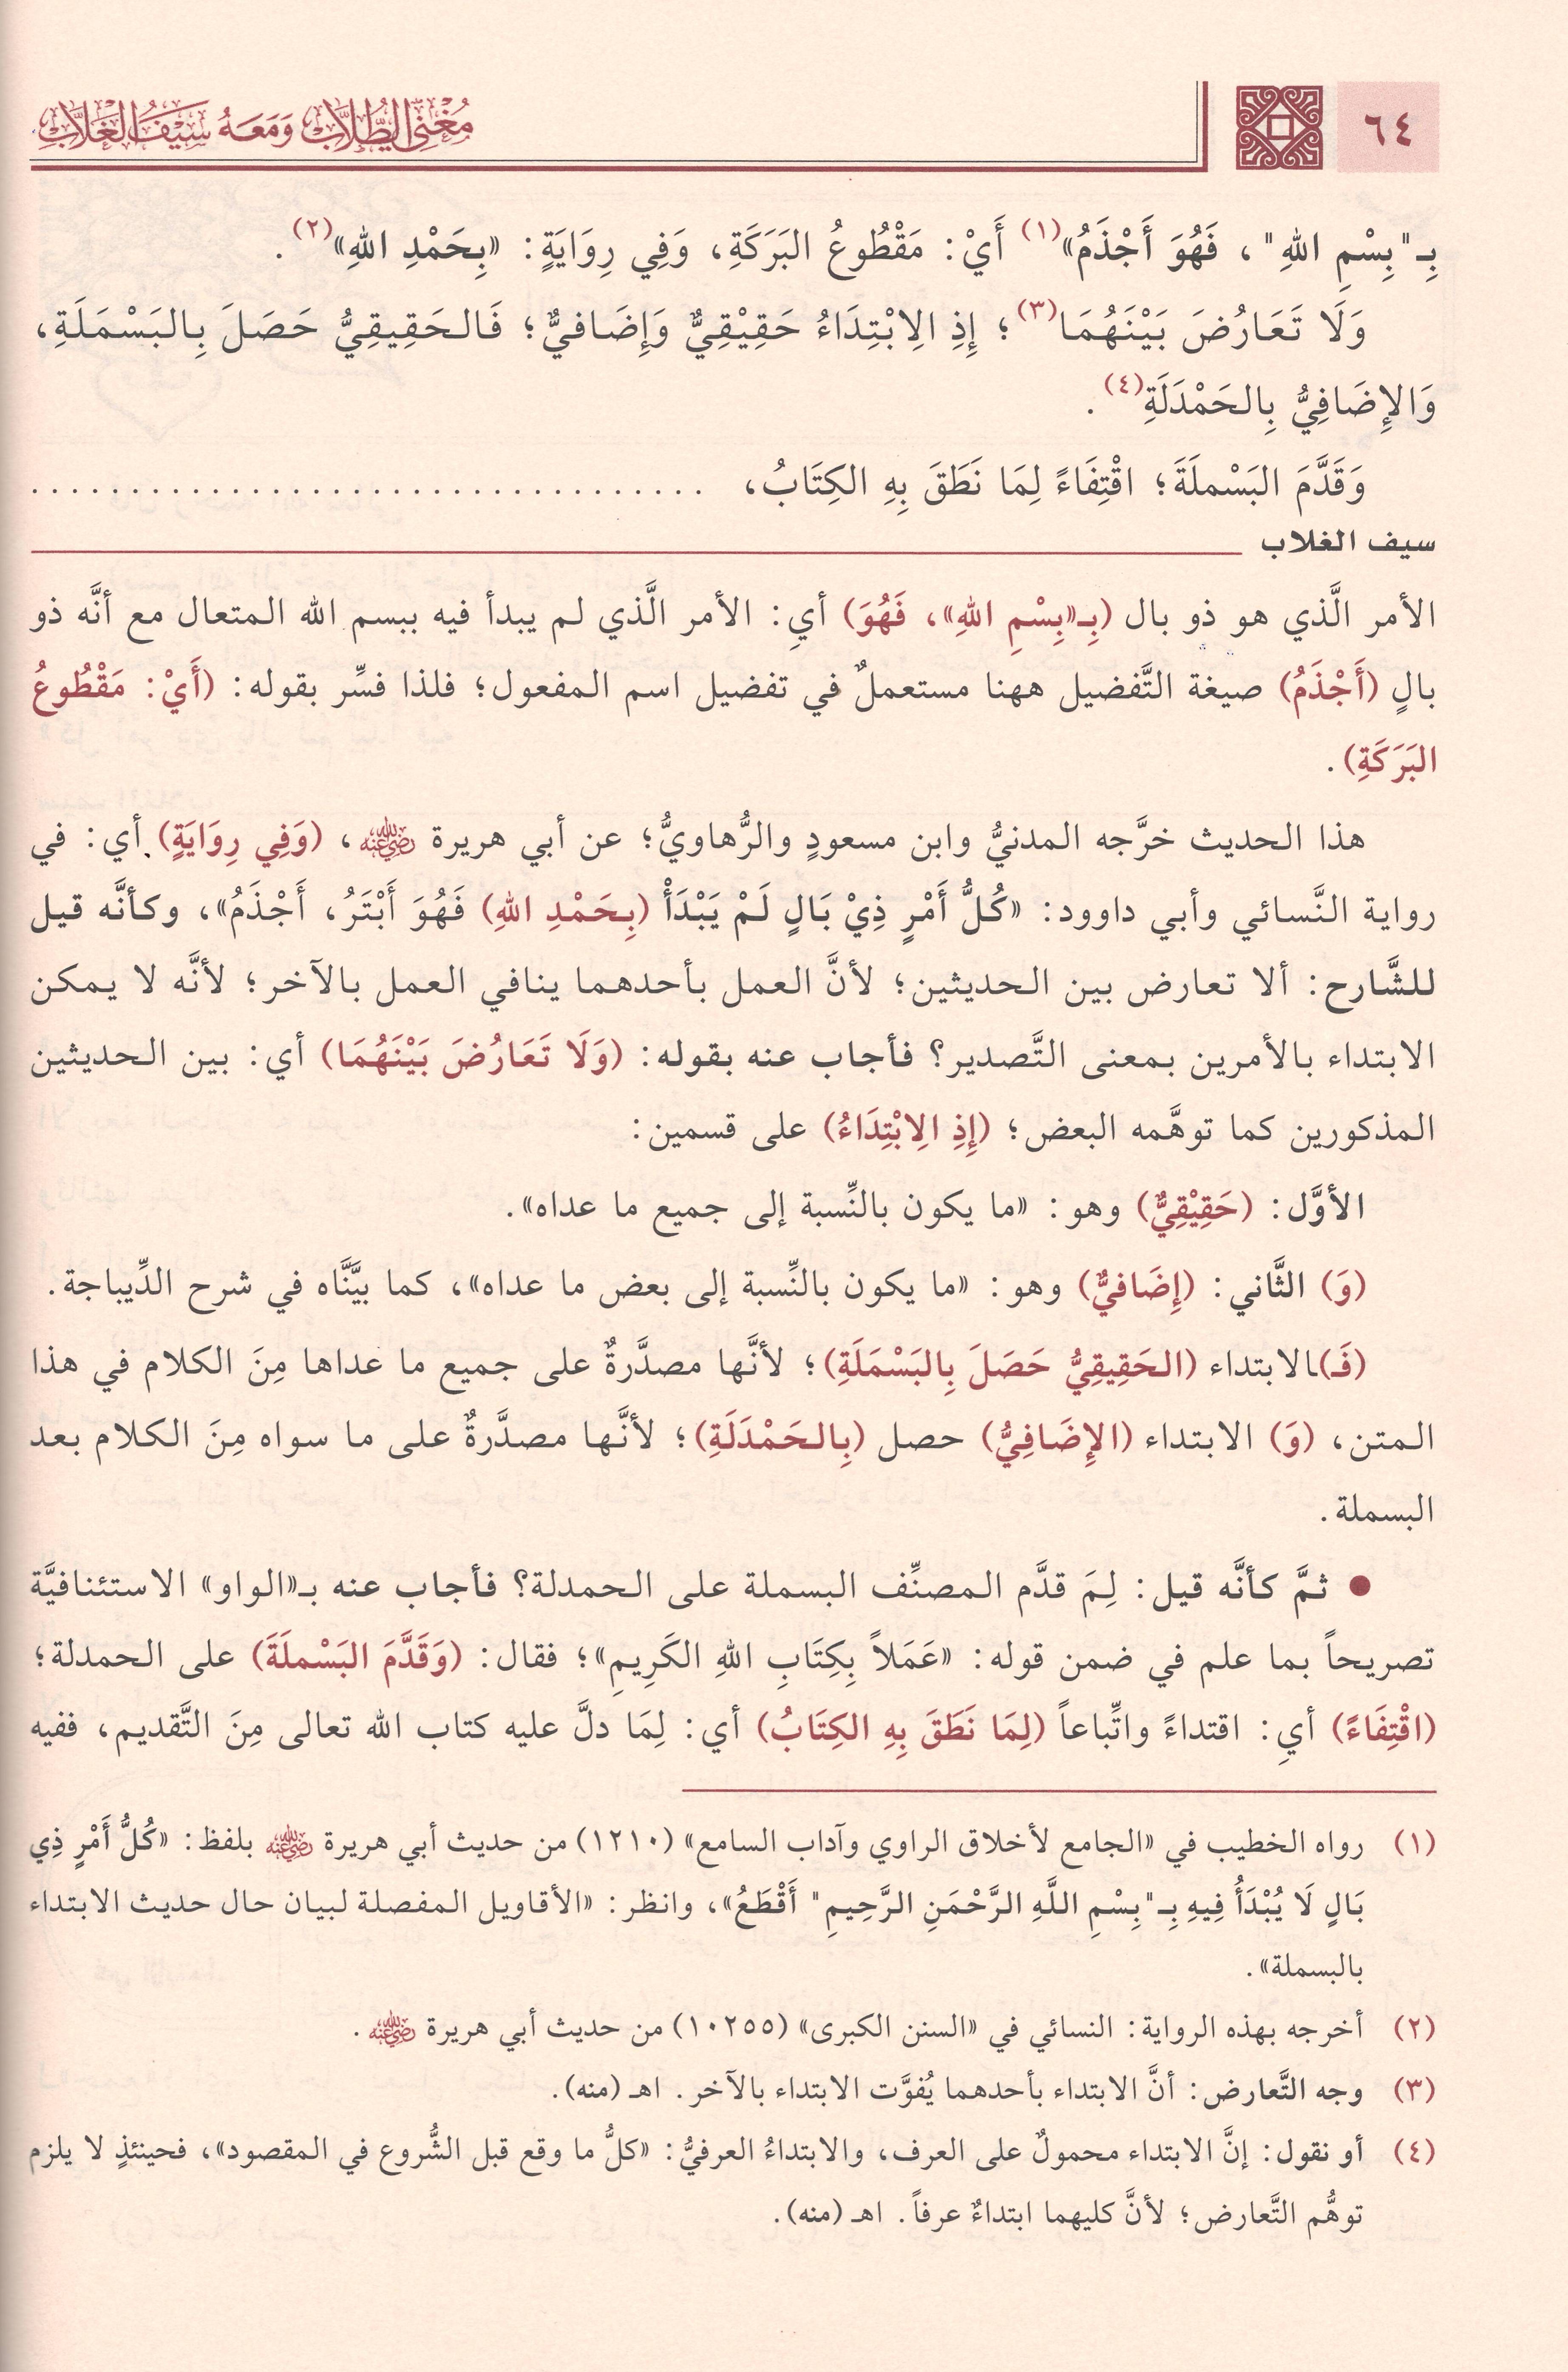 ٦٤
مُغْنِي الطُّلَّابِ وَمَعَهُ سَيْفُ الغَلَّابِ
بِـ"بِسْمِ اللهِ"، فَهُوَ أَجْذَمُ»(١) أَيْ: مَقْطُوعُ البَرَكَةِ، وَفِي رِوَايَةٍ: «بِحَمْدِ اللهِ»(٢).
وَلَا تَعَارُضَ بَيْنَهُمَا(٣)؛ إِذِ الِابْتِدَاءُ حَقِيْقِيٌّ وَإِضَافيٌّ؛ فَالحَقِيقِيُّ حَصَلَ بِالبَسْمَلَةِ،
وَالإِضَافِيُّ بِالحَمْدَلَةِ(٤).
وَقَدَّمَ البَسْملَةَ؛ اقْتِفَاءً لِمَا نَطَقَ بِهِ الكِتَابُ، ..................................
سيف الغلاب
الأمر الَّذي هو ذو بال (بِـ«بِسْمِ اللهِ»، فَهُوَ) أي: الأمر الَّذي لم يبدأ فيه ببسم الله المتعال مع أنَّه ذو
بالٍ (أَجْذَمُ) صيغة التَّفضيل ههنا مستعملٌ في تفضيل اسم المفعول؛ فلذا فسِّر بقوله: (أَيْ: مَقْطُوعُ
البَرَكَةِ).
هذا الحديث خرَّجه المدنيُّ وابن مسعودٍ والرُّهاويُّ؛ عن أبي هريرة رضي الله عنه، (وَفِي رِوَايَةٍ) أي: في
رواية النَّسائي وأبي داوود: «كُلُّ أَمْرٍ ذِيْ بَالٍ لَمْ يَبْدَأْ (بِحَمْدِ اللهِ) فَهُوَ أَبْتَرُ، أَجْذَمُ»، وكأنَّه قيل
للشَّارح: ألا تعارض بين الحديثين؛ لأنَّ العمل بأحدهما ينافي العمل بالآخر؛ لأنَّه لا يمكن
الابتداء بالأمرين بمعنى التَّصدير؟ فأجاب عنه بقوله: (وَلَا تَعَارُضَ بَيْنَهُمَا) أي: بين الحديثين
المذكورين كما توهَّمه البعض؛ (إِذِ الِابْتِدَاءُ) على قسمين:
الأوَّل: (حَقِيْقِيٌّ) وهو: «ما يكون بالنِّسبة إلى جميع ما عداه».
(وَ) الثَّاني: (إِضَافيٌّ) وهو: «ما يكون بالنِّسبة إلى بعض ما عداه»، كما بيَّنَّاه في شرح الدِّيباجة.
(فَـ)ـالابتداء (الحَقِيقِيُّ حَصَلَ بِالبَسْمَلَةِ)؛ لأنَّها مصدَّرةٌ على جميع ما عداها مِنَ الكلام في هذا
المتن، (وَ) الابتداء (الإِضَافِيُّ) حصل (بِالحَمْدَلَةِ)؛ لأنَّها مصدَّرةٌ على ما سواه مِنَ الكلام بعد
البسملة.
● ثمَّ كأنَّه قيل: لِمَ قدَّم المصنِّف البسملة على الحمدلة؟ فأجاب عنه بـ«الواو» الاستئنافيَّة
تصريحاً بما علم في ضمن قوله: «عَمَلاً بِكِتَابِ اللهِ الكَرِيمِ»؛ فقال: (وَقَدَّمَ البَسْملَةَ) على الحمدلة؛
(اقْتِفَاءً) أي: اقتداءً واتِّباعاً (لِمَا نَطَقَ بِهِ الكِتَابُ) أي: لِمَا دلَّ عليه كتاب الله تعالى مِنَ التَّقديم، ففيه
(١) رواه الخطيب في «الجامع لأخلاق الراوي وآداب السامع» (١٢١٠) من حديث أبي هريرة رضي الله عنه بلفظ: «كُلُّ أَمْرٍ ذِي
بَالٍ لَا يُبْدَأُ فِيهِ بِـ"بِسْمِ اللَّهِ الرَّحْمَنِ الرَّحِيمِ" أَقْطَعُ»، وانظر: «الأقاويل المفصلة لبيان حال حديث الابتداء
بالبسملة».
(٢) أخرجه بهذه الرواية: النسائي في «السنن الكبرى» (١٠٢٥٥) من حديث أبي هريرة رضي الله عنه.
(٣) وجه التَّعارض: أنَّ الابتداء بأحدهما يُفوَّت الابتداء بالآخر. اهـ (منه).
(٤) أو نقول: إنَّ الابتداء محمولٌ على العرف، والابتداءُ العرفيُّ: «كلُّ ما وقع قبل الشُّروع في المقصود»، فحينئذٍ لا يلزم
توهُّم التَّعارض؛ لأنَّ كليهما ابتداءٌ عرفاً. اهـ (منه).